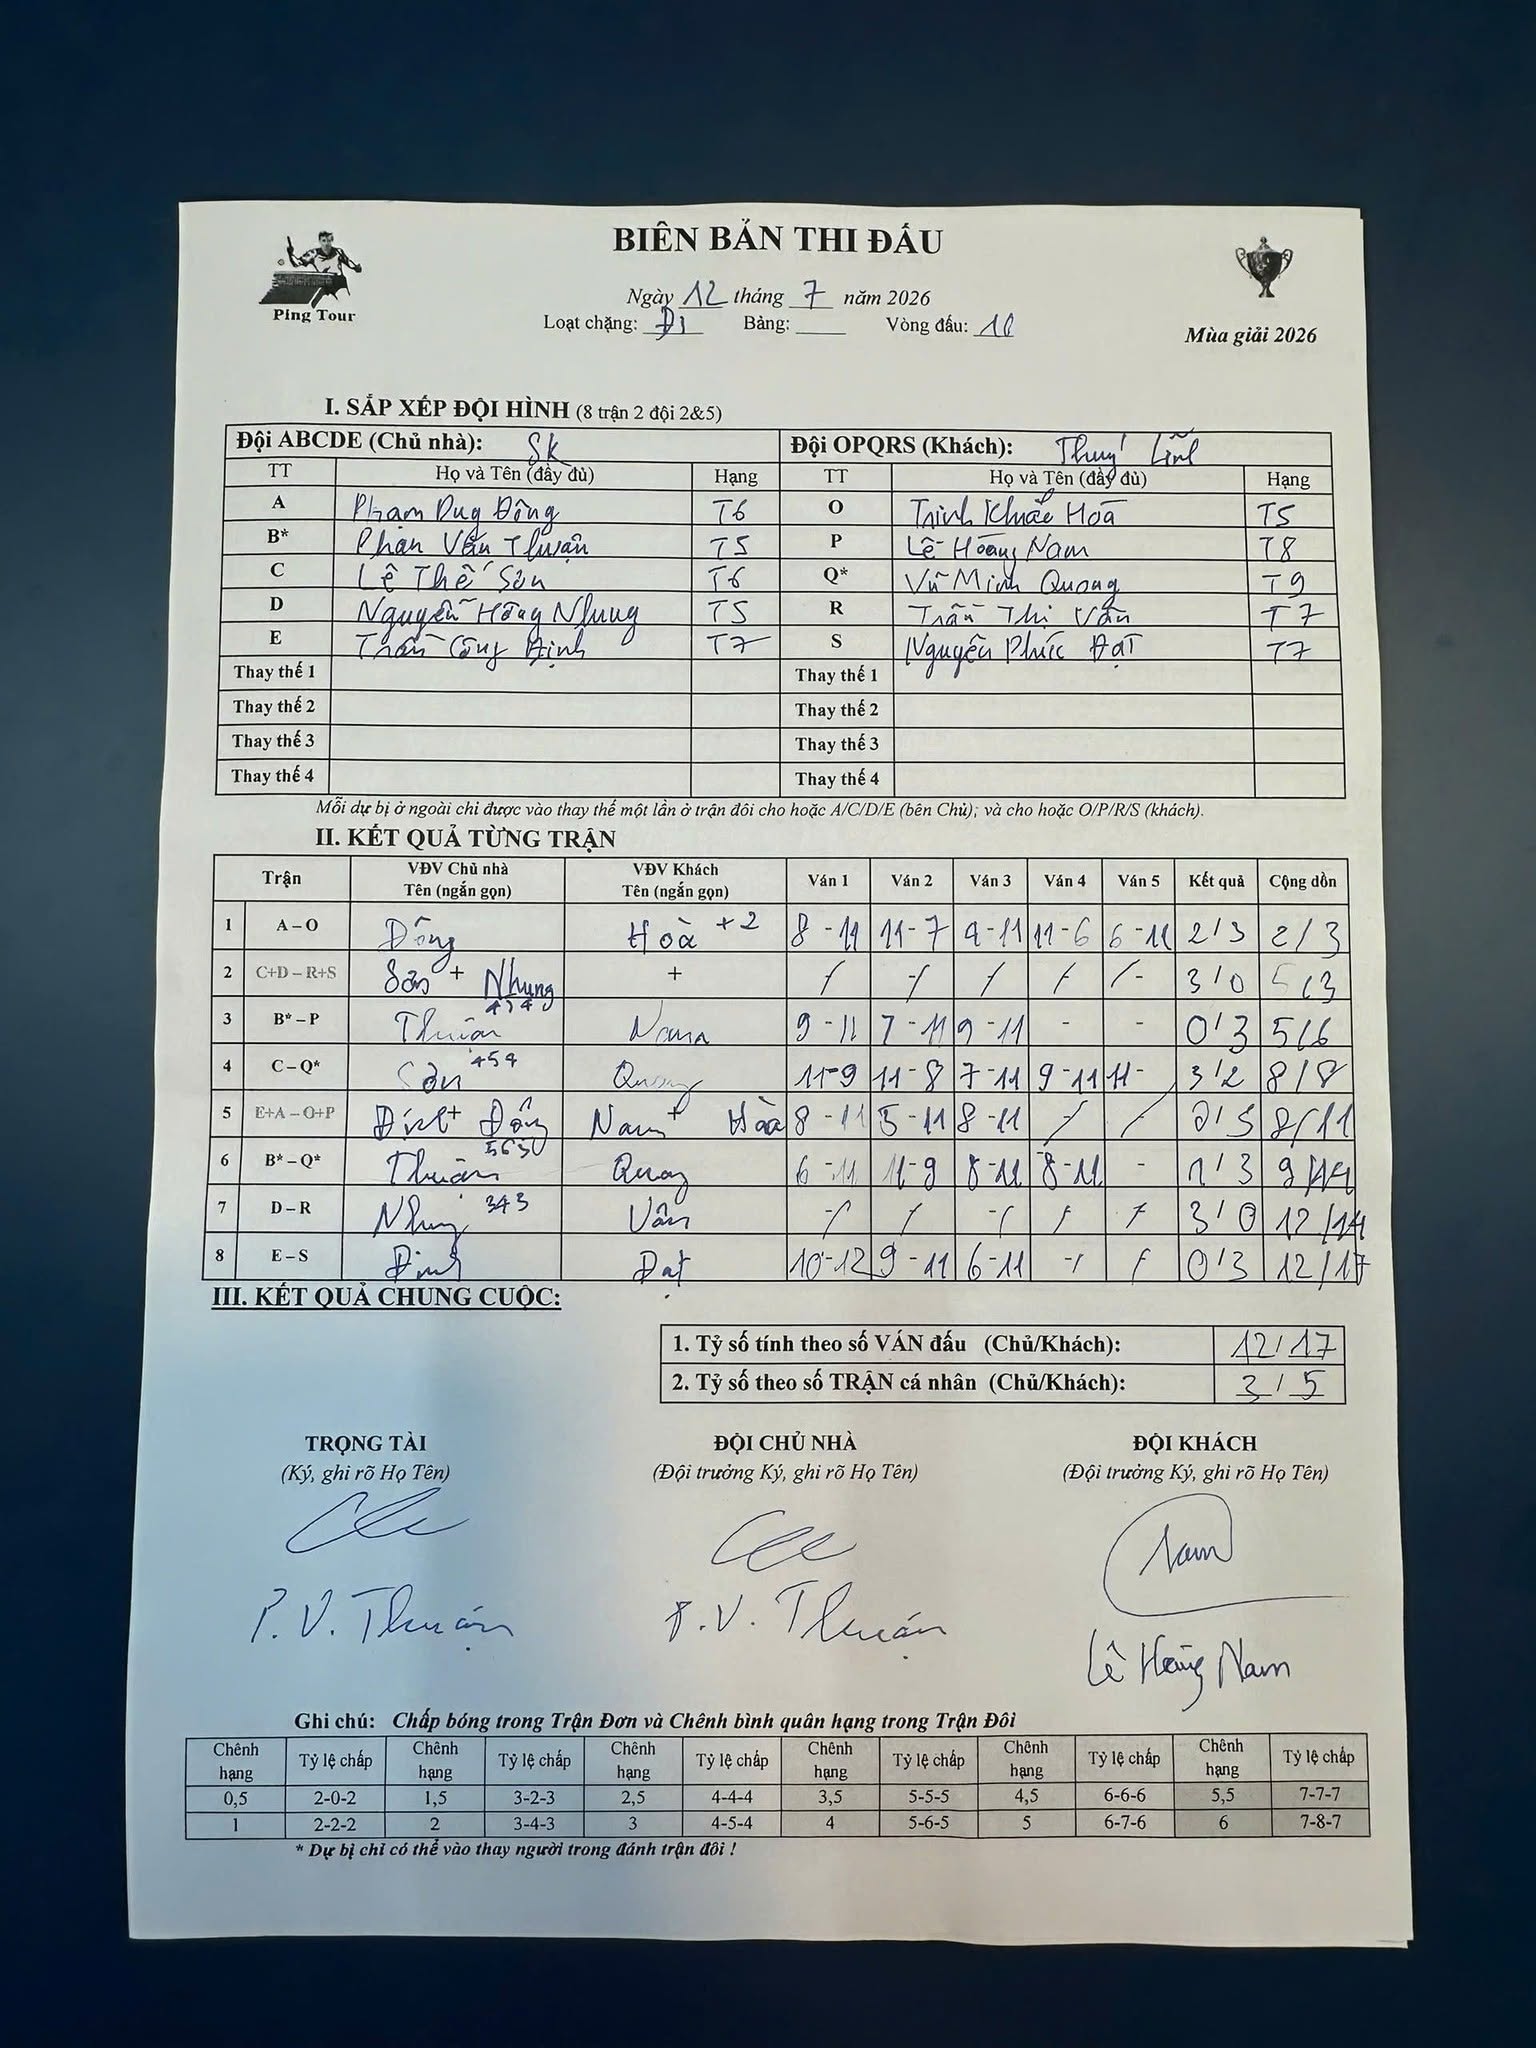 BIÊN BẢN THI ĐẤU
Ping Tour
Ngày 12 tháng 7 năm 2026
Loạt chặng: Đ1 Bảng: ____ Vòng đấu: 10
Mùa giải 2026
I. SẮP XẾP ĐỘI HÌNH (8 trận 2 đội 2&5)
Đội ABCDE (Chủ nhà): SK Đội OPQRS (Khách): Thuý Lĩnh
TT Họ và Tên (đầy đủ) Hạng TT Họ và Tên (đầy đủ) Hạng
A Phạm Duy Đông T6 O Trịnh Khắc Hoà T5
B* Phan Văn Thuận T5 P Lê Hoàng Nam T8
C Lê Thế Sơn T6 Q* Vũ Minh Quang T9
D Nguyễn Hồng Nhung T5 R Trần Thị Vân T7
E Trần Công Định T7 S Nguyễn Phúc Đạt T7
Thay thế 1 Thay thế 1
Thay thế 2 Thay thế 2
Thay thế 3 Thay thế 3
Thay thế 4 Thay thế 4
Mỗi dự bị ở ngoài chỉ được vào thay thế một lần ở trận đôi cho hoặc A/C/D/E (bên Chủ); và cho hoặc O/P/R/S (khách).
II. KẾT QUẢ TỪNG TRẬN
Trận VĐV Chủ nhà Tên (ngắn gọn) VĐV Khách Tên (ngắn gọn) Ván 1 Ván 2 Ván 3 Ván 4 Ván 5 Kết quả Cộng dồn
1 A – O Đông Hoà +2 8 - 11 11 - 7 9 - 11 11 - 6 6 - 11 2 / 3 2 / 3
2 C+D – R+S Sơn + Nhung + / / / / / - 3 / 0 5 / 3
3 B* – P Thuận 434 Nam 9 - 11 7 - 11 9 - 11 - - 0 / 3 5 / 6
4 C – Q* Sơn 454 Quang 11 - 9 11 - 8 7 - 11 9 - 11 11 - 3 / 2 8 / 8
5 E+A – O+P Định + Đông Nam + Hoà 8 - 11 5 - 11 8 - 11 / / 0 / 3 8 / 11
6 B* – Q* Thuận 565 Quang 6 - 11 11 - 9 8 - 11 8 - 11 - 1 / 3 9 / 14
7 D – R Nhung 343 Vân / / / / / 3 / 0 12 / 14
8 E – S Định Đạt 10 - 12 9 - 11 6 - 11 - / / 0 / 3 12 / 17
III. KẾT QUẢ CHUNG CUỘC:
1. Tỷ số tính theo số VÁN đấu (Chủ/Khách): 12 / 17
2. Tỷ số theo số TRẬN cá nhân (Chủ/Khách): 3 / 5
TRỌNG TÀI ĐỘI CHỦ NHÀ ĐỘI KHÁCH
(Ký, ghi rõ Họ Tên) (Đội trưởng Ký, ghi rõ Họ Tên) (Đội trưởng Ký, ghi rõ Họ Tên)
Nam
P. V. Thuận P. V. Thuận
Lê Hoàng Nam
Ghi chú: Chấp bóng trong Trận Đơn và Chênh bình quân hạng trong Trận Đôi
Chênh hạng Tỷ lệ chấp Chênh hạng Tỷ lệ chấp Chênh hạng Tỷ lệ chấp Chênh hạng Tỷ lệ chấp Chênh hạng Tỷ lệ chấp Chênh hạng Tỷ lệ chấp
0,5 2-0-2 1,5 3-2-3 2,5 4-4-4 3,5 5-5-5 4,5 6-6-6 5,5 7-7-7
1 2-2-2 2 3-4-3 3 4-5-4 4 5-6-5 5 6-7-6 6 7-8-7
* Dự bị chỉ có thể vào thay người trong đánh trận đôi !